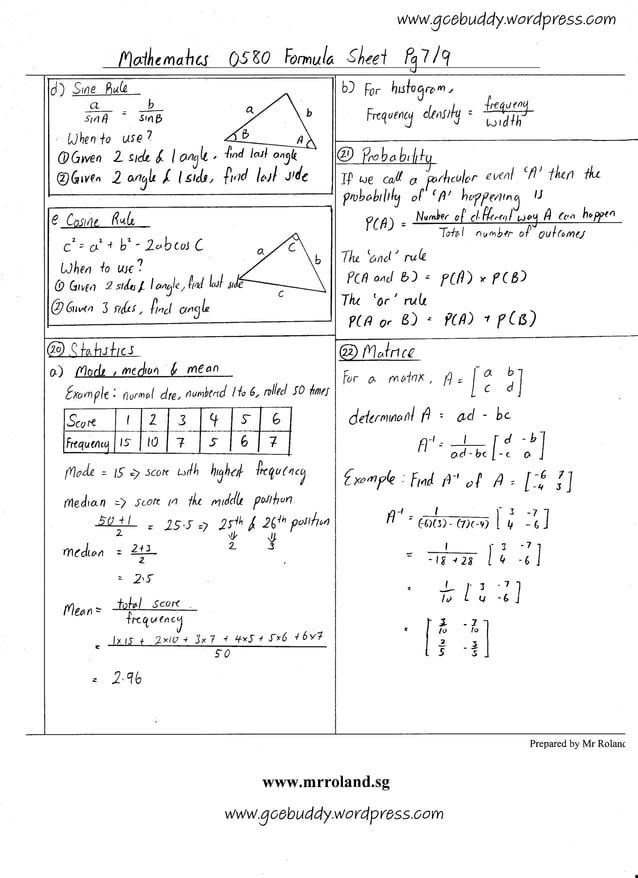 www.gcebuddy.wordpress.com
Mathematics 0580 Formula Sheet Pg 7/9
d) Sine Rule
a/sinA = b/sinB
When to use?
① Given 2 side & 1 angle, find last angle
② Given 2 angle & 1 side, find last side
a
b
B
A
e Cosine Rule
c² = a² + b² - 2abcos C
When to use?
① Given 2 sides & 1 angle, find last side
② Given 3 sides, find angle
a
C
b
c
⑳ Statistics
a) Mode, median & mean
Example: normal dre, numbernd 1 to 6, rolled 50 times
Score 1 2 3 4 5 6
Frequency 15 10 7 5 6 7
Mode = 15 => score with highest frequency
Median => score in the middle position.
50+1/2 = 25.5 => 25th & 26th position
⇓ ⇓
2 3
median = 2+3/2
= 2.5
Mean = total score/frequency
= 1x15 + 2x10 + 3x7 + 4x5 + 5x6 + 6x7/50
= 2.96
b) For histogram,
Frequency density = frequeny/width
㉑ Probability
If we call a particular event 'A' then the
probability of 'A' happening is
P(A) = Number of different way A can happen/Total number of outcomes
The 'and' rule
P(A and B) = P(A) x P(B)
The 'or' rule
P(A or B) = P(A) + P(B)
㉒ Matrice
For a matrix, A = [a b
c d]
determinant A = ad - bc
A⁻¹ = 1/ad-bc [d -b
-c a]
Example: Find A⁻¹ of A = [-6 7
-4 3]
A⁻¹ = 1/(-6)(3) - (7)(-4) [3 -7
4 -6]
= 1/-18 + 28 [3 -7
4 -6]
= 1/10 [3 -7
4 -6]
= [3/10 -7/10
2/5 -3/5]
Prepared by Mr Rolan
www.mrroland.sg
www.gcebuddy.wordpress.com